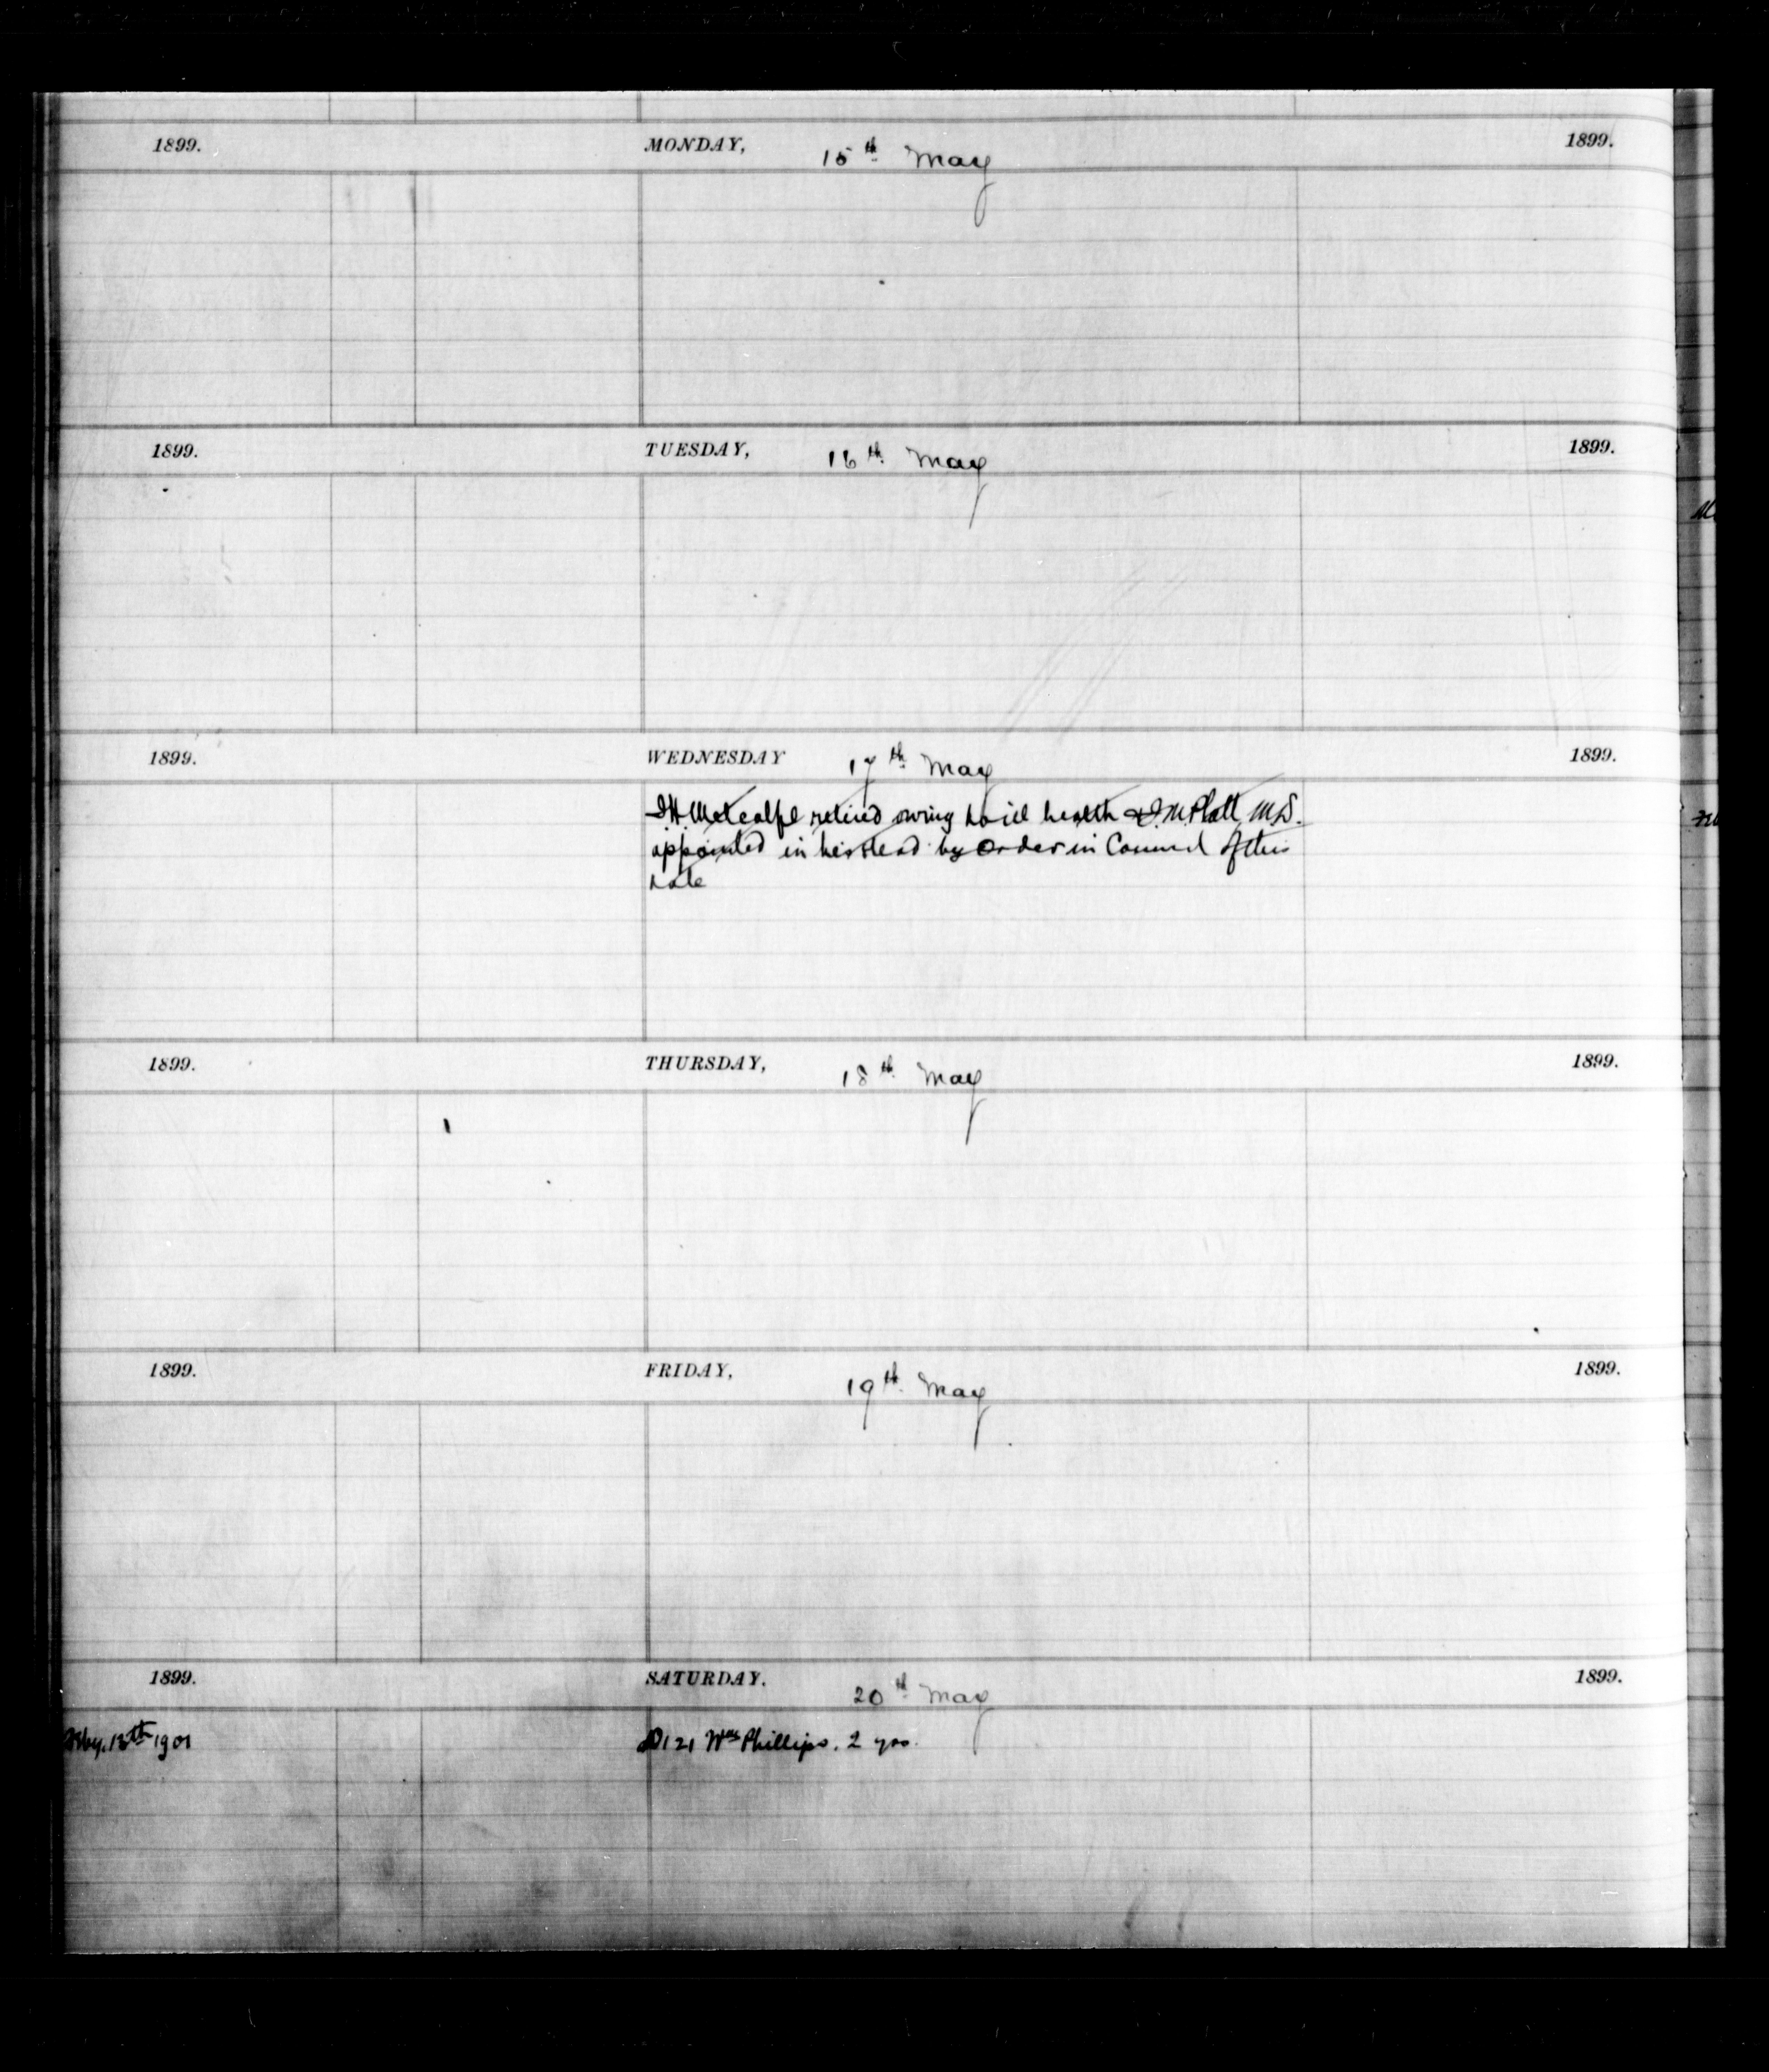 1899. MONDAY, 15th May 1899.
1899. TUESDAY, 16th May 1899.
1899. WEDNESDAY 17th May 1899.
Metcalfe retired owing to ill health & Platt, M.D.
appointed in his stead by Order in Council of this
date
1899. THURSDAY, 18th May 1899.
1899. FRIDAY, 19th May 1899.
1899. SATURDAY. 20th May 1899.
1901 D121 Wm Phillips. 2 yrs.